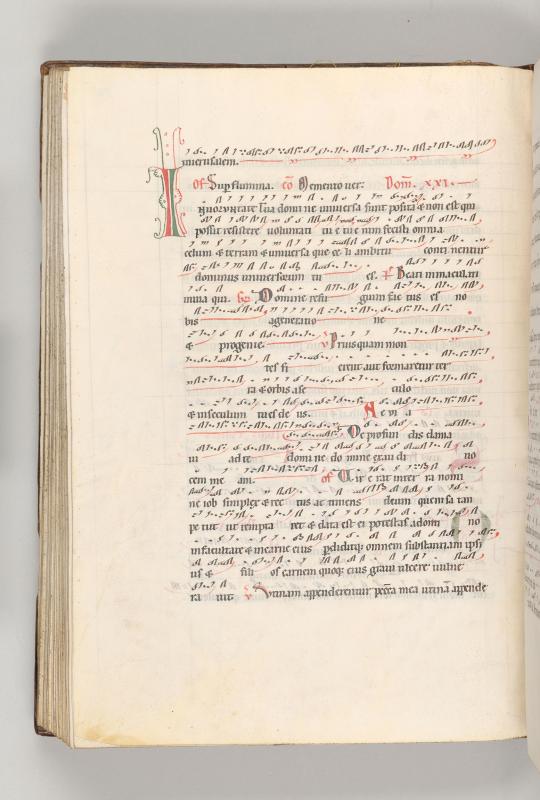 iherusalem.
Of Sup flumina. co Memento uer. Dom. XXI.
IN UOLUNTATE tua domine uniuersa sunt posita & non est qui
possit resistere uoluntati tu e tu e nim fecisti omnia
celum & terram & uniuersa que ce li ambitu conti nentur
dominus uniuersorum tu es. Ps Beati inmaculati
inuia qui. Domine refu gium fac tus es no
bis ageneratio ne
& progenie. V Priusquam mon
tes fi erent aut formaretur ter
ra & orbis ase culo
& inseculum tu es de us. A e u i a
De profun dis clama
ui ad te domi ne do mine exau di no
cem me am. of Uir e rat inter ra nomi
ne iob simplex & rec tus ac timens deum quem sa tan
pe tiit ut tempta ret & data est ei potestas adomi no
infacultate & incarne eius p̱diditq; omnem substantiam ipsi
us & fili os carnem quoq; eius graui ulcere uulne
ra uit V Utinam appenderentur pecc̄a mea utinā appende